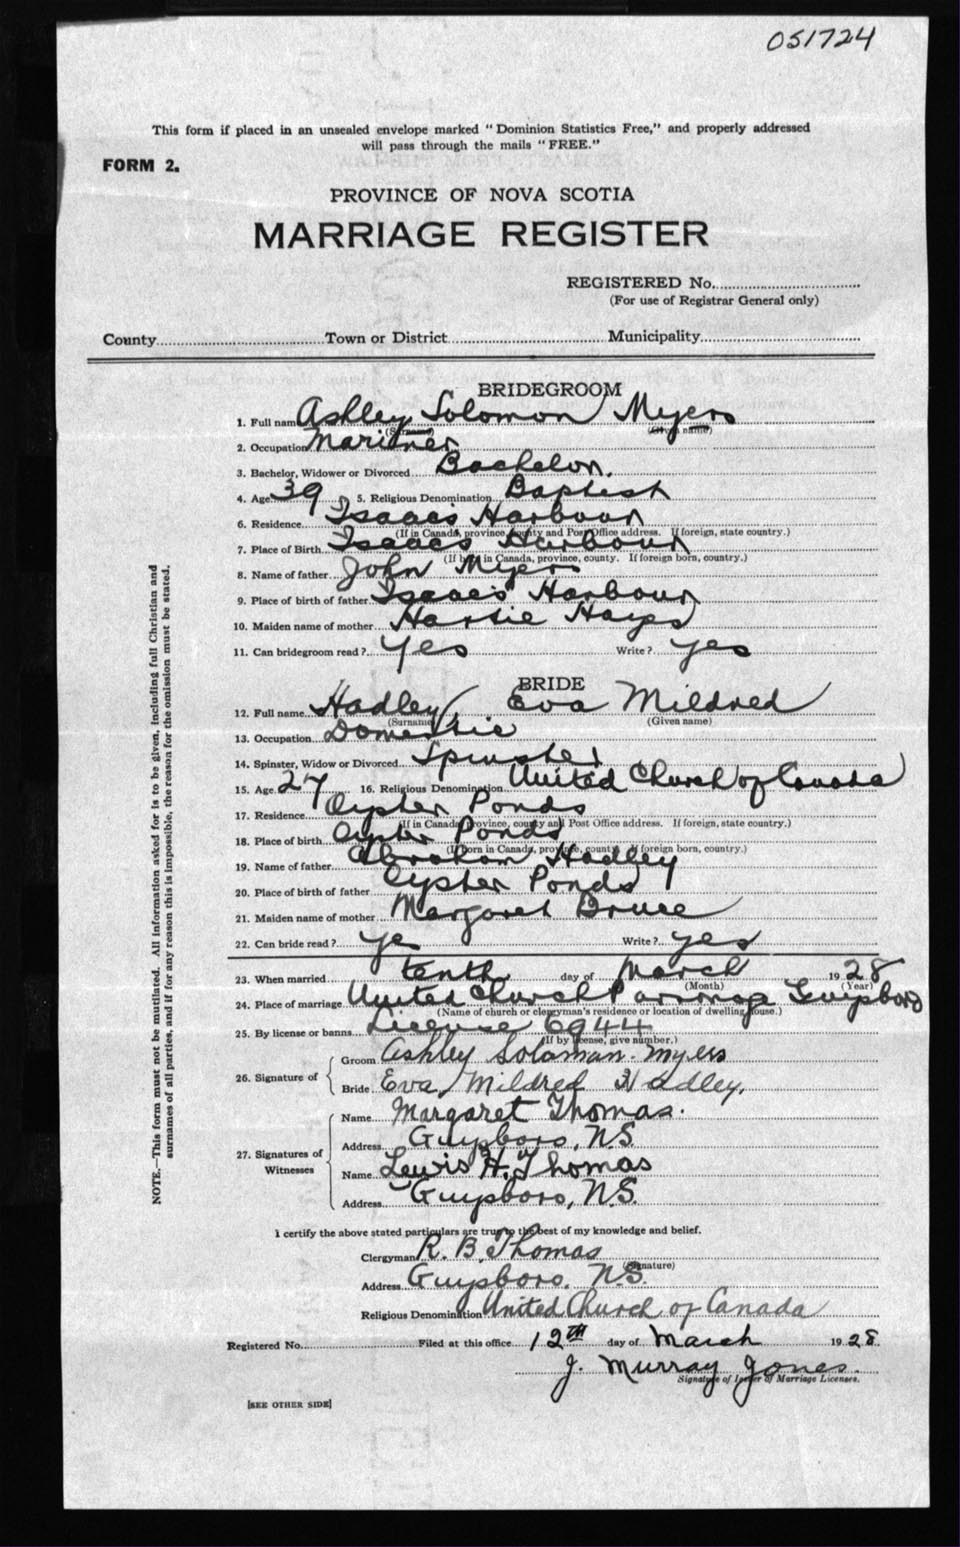 051724
This form if placed in an unsealed envelope marked "Dominion Statistics Free," and properly addressed
will pass through the mails "FREE."
FORM 2.
PROVINCE OF NOVA SCOTIA
MARRIAGE REGISTER
REGISTERED No.
(For use of Registrar General only)
County Town or District Municipality
BRIDEGROOM
1. Full name Ashley Solomon Myers
(Surname) (Given name)
2. Occupation Marinner
3. Bachelor, Widower or Divorced Bachelor.
4. Age 39 5. Religious Denomination Baptist
6. Residence Isaacs Harbour
(If in Canada, province, county and Post Office address. If foreign, state country.)
7. Place of Birth Isaacs Harbour
(If born in Canada, province, county. If foreign born, country.)
8. Name of father John Myers
9. Place of birth of father Isaacs Harbour
10. Maiden name of mother Hattie Hayes
11. Can bridegroom read? Yes Write? yes
BRIDE
12. Full name Hadley Eva Mildred
(Surname) (Given name)
13. Occupation Domestic
14. Spinster, Widow or Divorced Spinster
15. Age 27 16. Religious Denomination United Church of Canada
17. Residence Oyster Ponds
(If in Canada, province, county and Post Office address. If foreign, state country.)
18. Place of birth Oyster Ponds
(If born in Canada, province, county. If foreign born, country.)
19. Name of father Abraham Hadley
20. Place of birth of father Oyster Ponds
21. Maiden name of mother Margaret Bruce
22. Can bride read? ye Write? yes
23. When married tenth day of March 1928
(Month) (Year)
24. Place of marriage United Church Parsonage Guysboro
(Name of church or clergyman's residence or location of dwelling house.)
25. By license or banns License 6944
(If by license, give number.)
26. Signature of Groom Ashley Solaman Myers
Bride Eva Mildred Hadley.
27. Signatures of Witnesses
Name Margaret Thomas.
Address Guysboro, N.S.
Name Lewis H. Thomas
Address Guysboro, N.S.
I certify the above stated particulars are true to the best of my knowledge and belief.
Clergyman R. B. Thomas
(Signature)
Address Guysboro. N.S.
Religious Denomination United Church of Canada
Registered No. Filed at this office 12TH day of March 1928.
J. Murray Jones.
Signature of Issuer of Marriage Licenses.
[SEE OTHER SIDE]
NOTE.—This form must not be mutilated. All information asked for is to be given, including full Christian and
surnames of all parties, and if for any reason this is impossible, the reason for the omission must be stated.